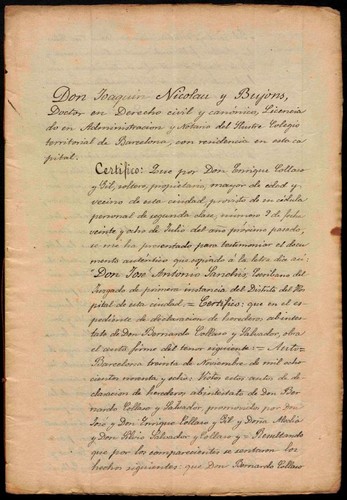 Don Joaquin Nicolau y Bujons,
Doctor en Derecho civil y canónico, Licencia
do en Administracion y Notario del Ilustre Colegio
territorial de Barcelona, con residencia en esta ca
pital.
Certifico: Que por Don Enrique Collaso
y Gil, soltero, propietario, mayor de edad y
vecino de esta ciudad, provisto de su cédula
personal de segunda clase, número 9 de fecha
veinte y ocho de Julio del año próximo pasado,
se me ha presentado para testimoniar el docu
mento auténtico que copiado á la letra dice así:
"Don José Antonio Escribano del
Juzgado de primera instancia del Distrito del Hos
pital de esta ciudad. = Certifico: que en el ex
pediente de declaracion de herederos abintes
tato de Don Bernardo Collaso y Salvador, obra
el auto firme del tenor siguiente: = Auto =
Barcelona treinta de Noviembre de mil ocho
cientos noventa y ocho: Vistos estos autos de de
claracion de herederos abintestato de Don Ber
nardo Collaso y Salvador, promovidos por Don
José y Don Enrique Collaso y Gil y Doña Maria
y Don Salvador y Collaso y = Resultando
que por los comparecientes se sentaron los
hechos siguientes: que Don Bernardo Collaso